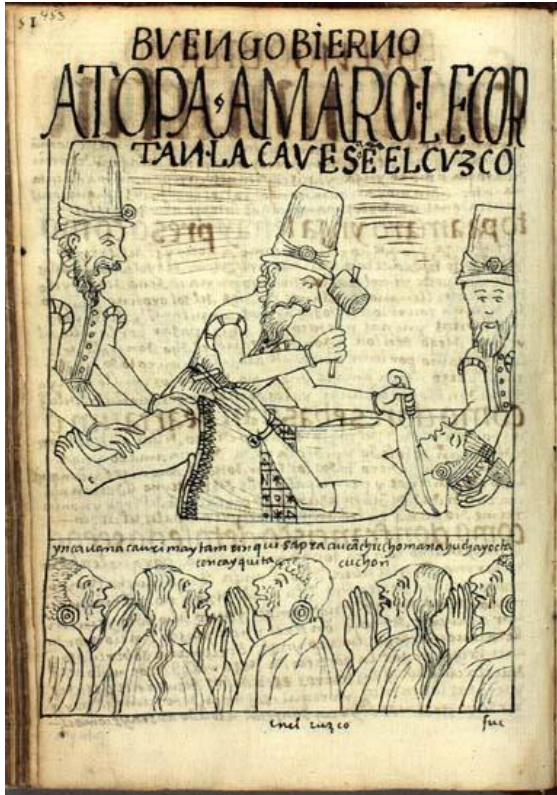 453
BVEN GOBIERNO
A TOPA AMARO·LE COR
TAN·LA CAVESA Ē EL CVZCO
ynca uana cauri maytam rinqui sapra aucãchiccho mana huchayocta
concayquita cuchon
en el cuzco
fue